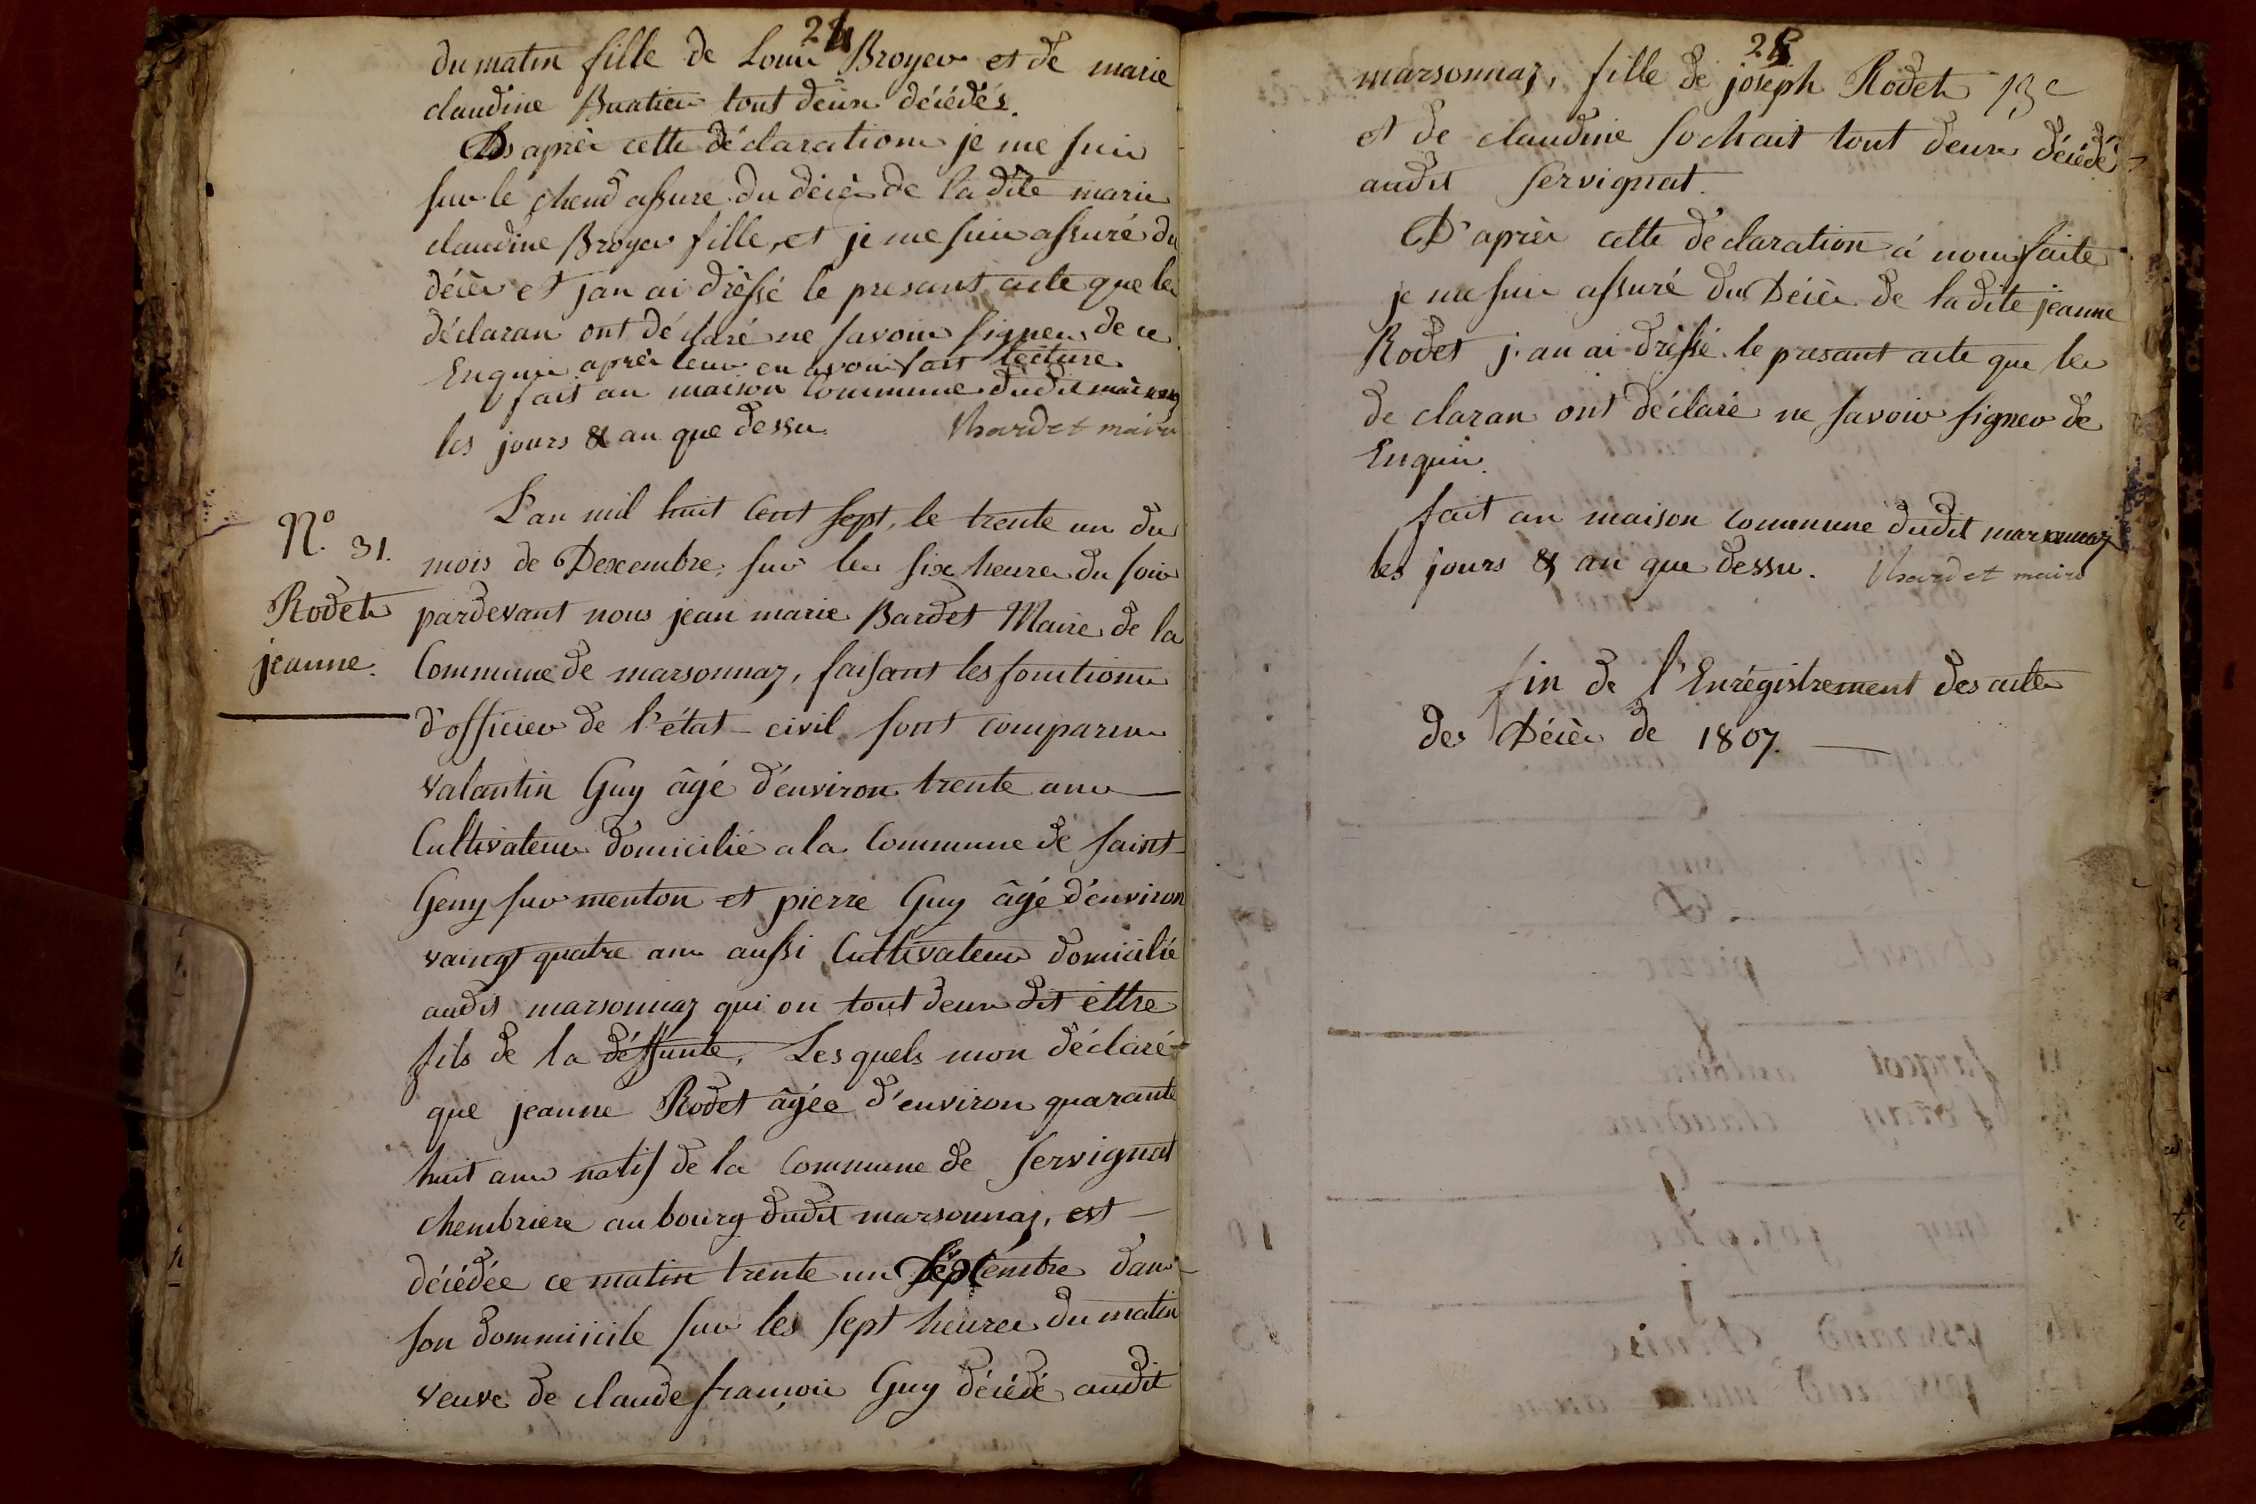 24
du matin fille de Louis Broyer et de marie
claudine Buatier tout deux décédés.
D'es aprèr cette déclaration je me suis
sur le champ assure du décès de la dite marie
claudine Broyer fille, et je me suis assuré du
décès et jan ai drèssé le presant acte que les
déclaran ont déclaré ne savoir signer de ce
Enquis après leur en avoir fait lecture
fait an maison Commune dudit marsonnaz
les jours & an que dessu. Bardet maire
L'an mil huit Cent sept, le trente un du
N.º 31.
mois de Dexembre, sur les six heures du soir
Rodet
pardevant nous jean marie Bardet Maire de la
jeanne.
Commune de marsonnaz, faisant les fonctions
d'officier de l'état-civil sont comparus
valantin Guy âgé d'environ trente ans
Cultivateur domicilié a la Commune de saint
Geny sur menton et pierre Guy âgé d'environ
vaingt quatre ans aussi Cultivateur domicilié
audit marsonnaz qui on tout deux dit ettre
fils de la déffunte, Lesquels mon déclaré
que jeanne Rodet âgée d'environ quarante
huit ans natif de la Commune de servignat
chembriere au bourg dudit marsonnaz, est
décédée ce matin trente un dans
son dommicile sur les sept heures du matin
veuve de claude françois Guy décédé audit
25
marsonnaz, fille de joseph Rodet
et de claudine sochait tout deux décédé
audit servignat.
D'après cette déclaration á nous faite
je me suis assuré du Décès de la dite jeanne
Rodet j'an ai drèssé le presant acte que les
declaran ont déclaré ne savoir signer de
Enquis.
fait an maison commune dudit marsonnaz
les jours & an que dessu. Bardet maire
fin de l'Enrégistrement des actes
des Décès de 1807.